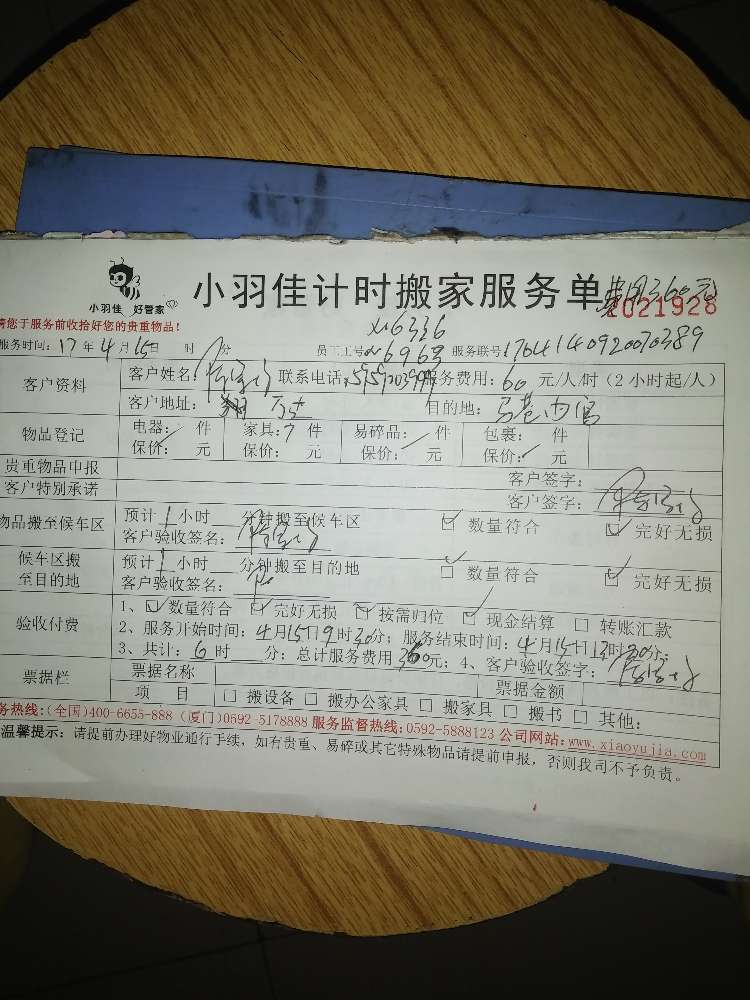 小羽佳 好管家
小羽佳计时搬家服务单 费用360元
2021928
请您于服务前收拾好您的贵重物品!
服务时间: 17 年 4 月 15 日 时 分 员工工号 6336 6963 服务联号 1704140920070389
客户资料 客户姓名: 联系电话: 服务费用: 60 元/人/时 (2小时起/人)
客户地址: 目的地:
物品登记 电器: 件 家具: 7 件 易碎品: 件 包裹: 件
保价: 元 保价: 元 保价: 元 保价: 元
贵重物品申报 客户签字:
客户特别承诺 客户签字:
物品搬至候车区 预计 1 小时 分钟搬至候车区 ☑ 数量符合 ☑ 完好无损
客户验收签名:
候车区搬至目的地 预计 1 小时 分钟搬至目的地 ☑ 数量符合 ☑ 完好无损
客户验收签名:
验收付费 1、☑ 数量符合 ☑ 完好无损 ☑ 按需归位 ☑ 现金结算 □ 转账汇款
2、服务开始时间: 4 月 15 日 9 时 30 分; 服务结束时间: 4 月 15 日 12 时 30 分;
3、共计: 6 时 分; 总计服务费用 360 元; 4、客户验收签字:
票据栏 票据名称 票据金额
项 目 □ 搬设备 □ 搬办公家具 □ 搬家具 □ 搬书 □ 其他:
务热线:(全国)400-6655-888 (厦门)0592-5178888 服务监督热线:0592-5888123 公司网站:www.xiaoyujia.com
温馨提示: 请提前办理好物业通行手续, 如有贵重、易碎或其它特殊物品请提前申报, 否则我司不予负责。